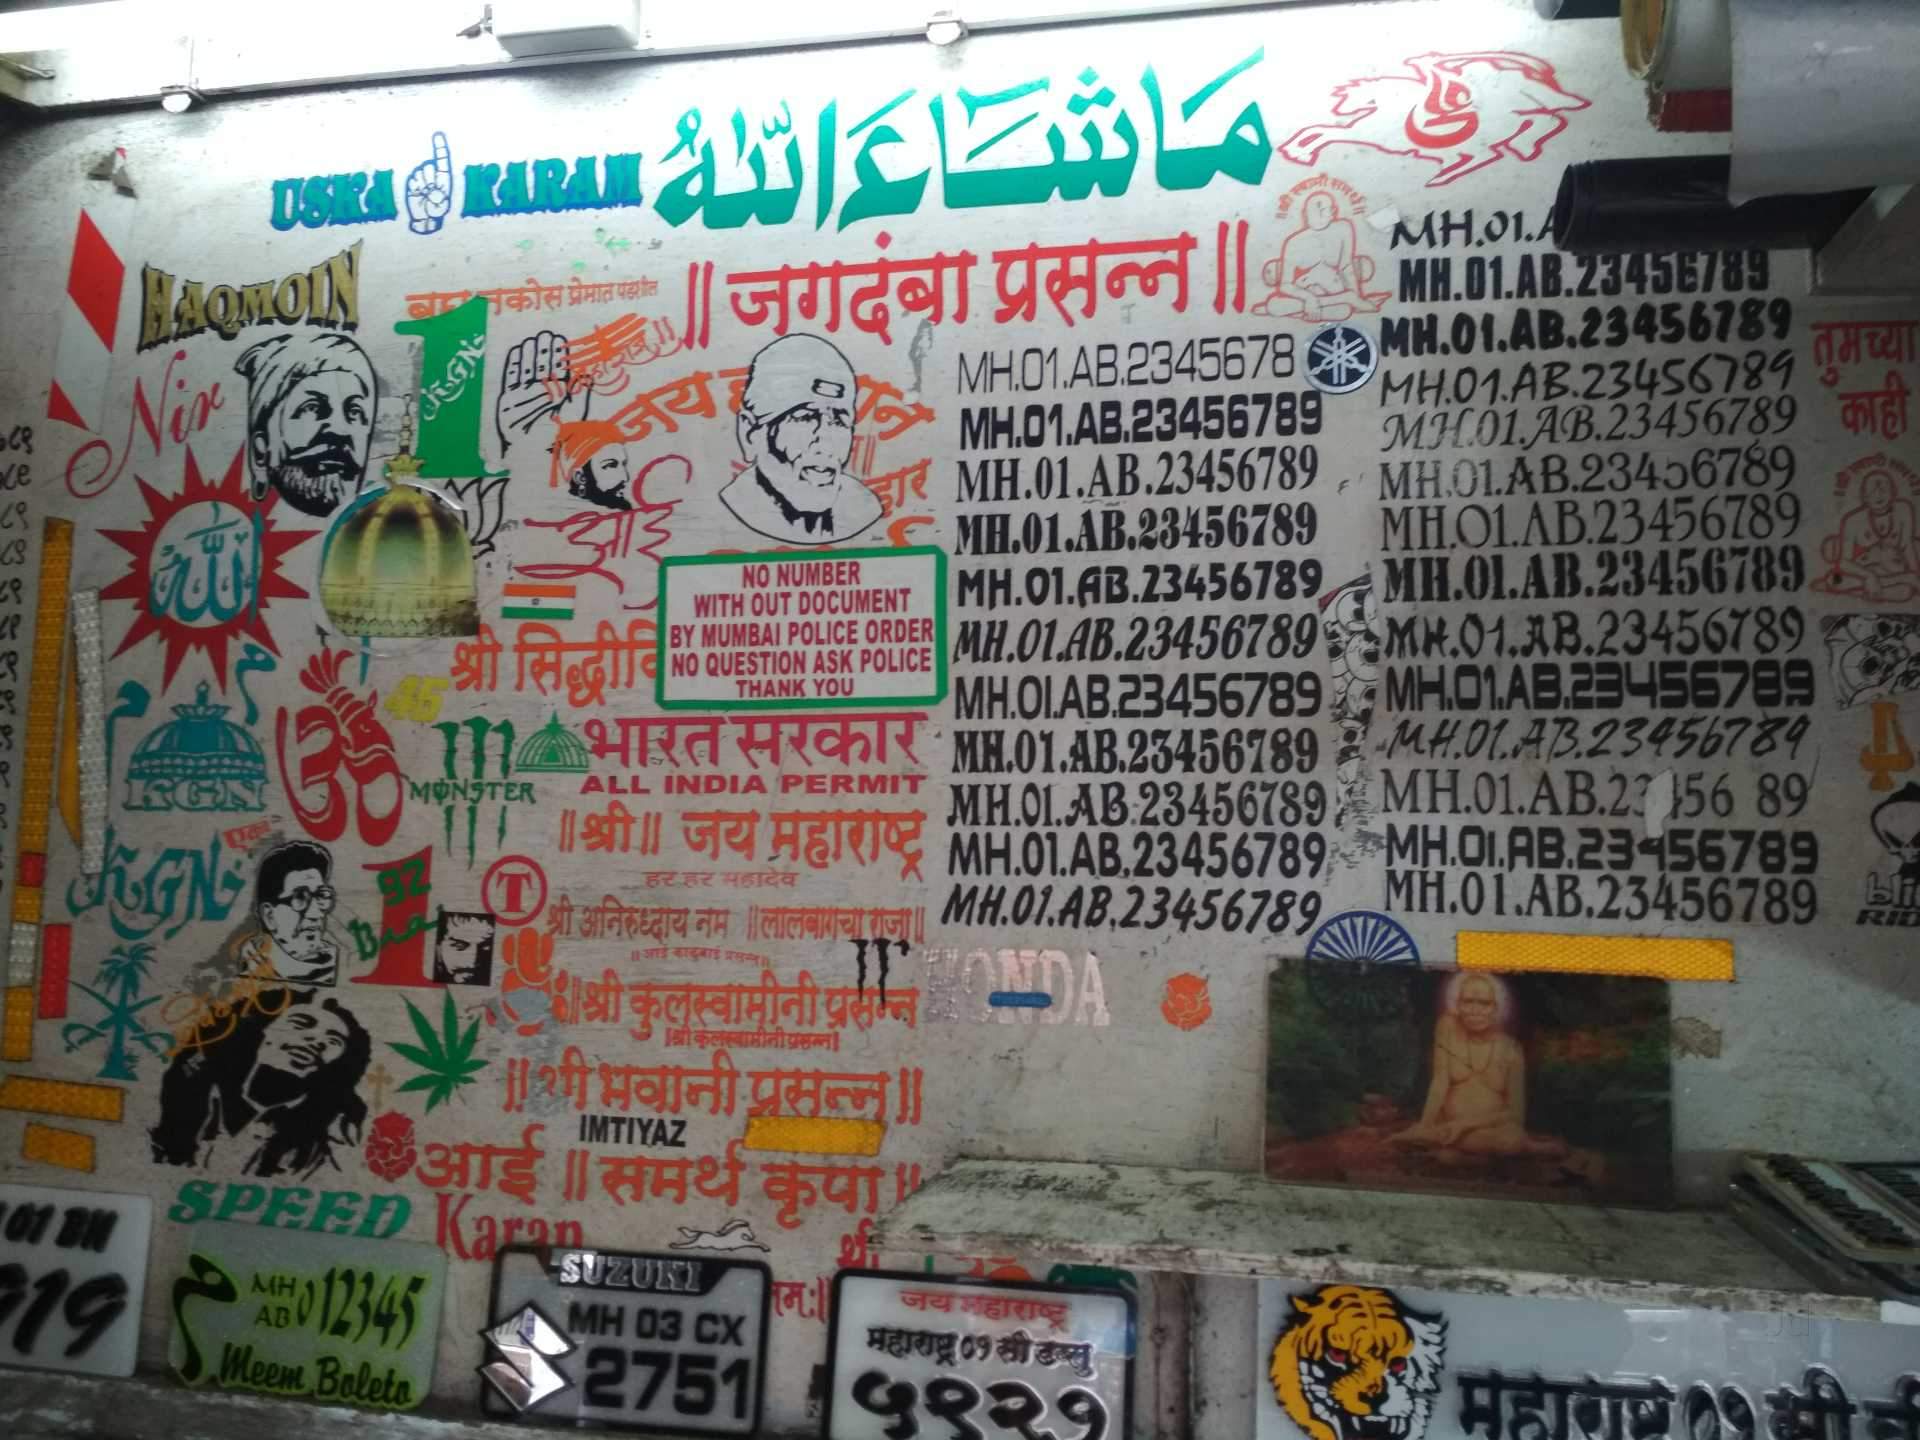 USKA KARAM
مَاشَاءَاللّٰهُ
HAQMOIN
Nix
॥ जगदंबा प्रसन्न ॥
॥ श्री स्वामी समर्थ ॥
KGN
1
जय
आई
الله
NO NUMBER
WITH OUT DOCUMENT
BY MUMBAI POLICE ORDER
NO QUESTION ASK POLICE
THANK YOU
श्री सिद्धीवि
46
MONSTER
भारत सरकार
ALL INDIA PERMIT
KGN
॥श्री॥ जय महाराष्ट्र
KGN
हर हर महादेव
92
1
T
श्री अनिरुध्दाय नम ॥लालबागचा राजा॥
॥श्री कुलस्वामीनी प्रसन्न
॥श्री कुलस्वामीनी प्रसन्न॥
भवानी प्रसन्न॥
IMTIYAZ
आई ॥ समर्थ कृपा
SPEED
Karan
MH.01.AB.2345678
MH.01.AB.23456789
MH.01.AB.23456789
MH.01.AB.23456789
MH.01.AB.23456789
MH.01.AB.23456789
MH.01.AB.23456789
MH.01.AB.23456789
MH.01.AB.23456789
MH.01.AB.23456789
MH.01.AB.23456789
HONDA
MH.01.A
MH.01.AB.23456789
MH.01.AB.23456789
MH.01.AB.23456789
MH.01.AB.23456789
MH.01.AB.23456789
MH.01.AB.23456789
MH.01.AB.23456789
MH.01.AB.23456789
MH.01.AB.23456789
MH.01.AB.23456789
MH.01.AB.23 56 89
MH.01.AB.23456789
MH.01.AB.23456789
तुमच्या
काही
01 BH
919
م
MH
AB
012345
Meem Boleto
SUZUKI
MH 03 CX
2751
जय महाराष्ट्र
महाराष्ट्र ०१ सी डब्लु
५९२१
महाराष्ट्र ०१ सी